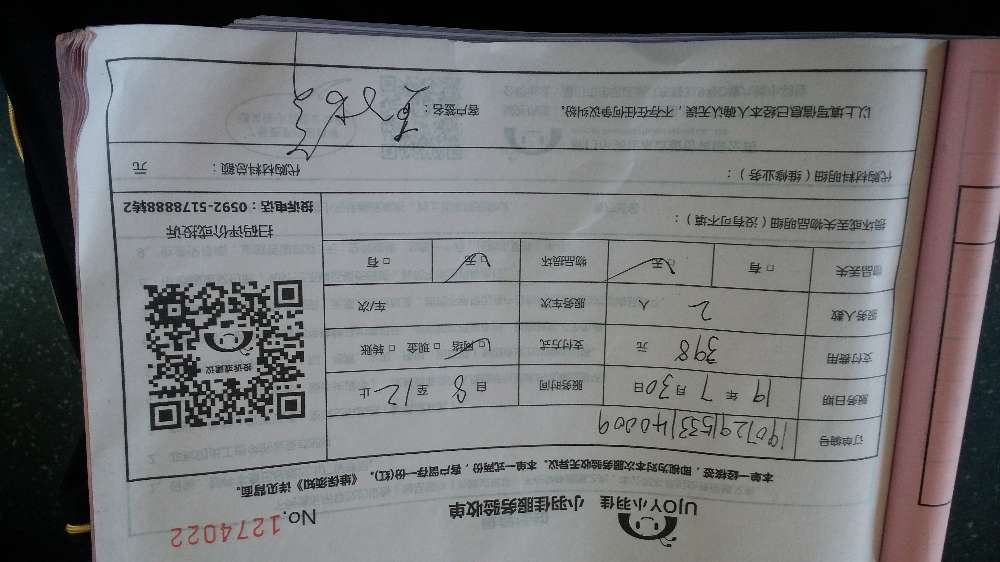 UJOY小羽佳 小羽佳服务验收单 No.1274022
本单一经核签，即视为对本次服务验收无异议。本单一式两份，客户留存一份(红)。《维保须知》详见背面。
订单编号 190729153314009
服务日期 19年7月30日 服务时间 自8至12止
支付费用 398元 支付方式 □网络 □现金 □转账
服务人数 2人 服务车次 车/次
物品丢失 □有 □无 物品损坏 □无 □有
投诉或建议
扫码评价或投诉
投诉电话：0592-5178888转2
损坏或丢失物品明细（没有可不填）：
代购材料明细（维修业务）： 代购材料总额： 元
以上填写信息已经本人确认无误，不存在任何争议纠纷。 客户签名：